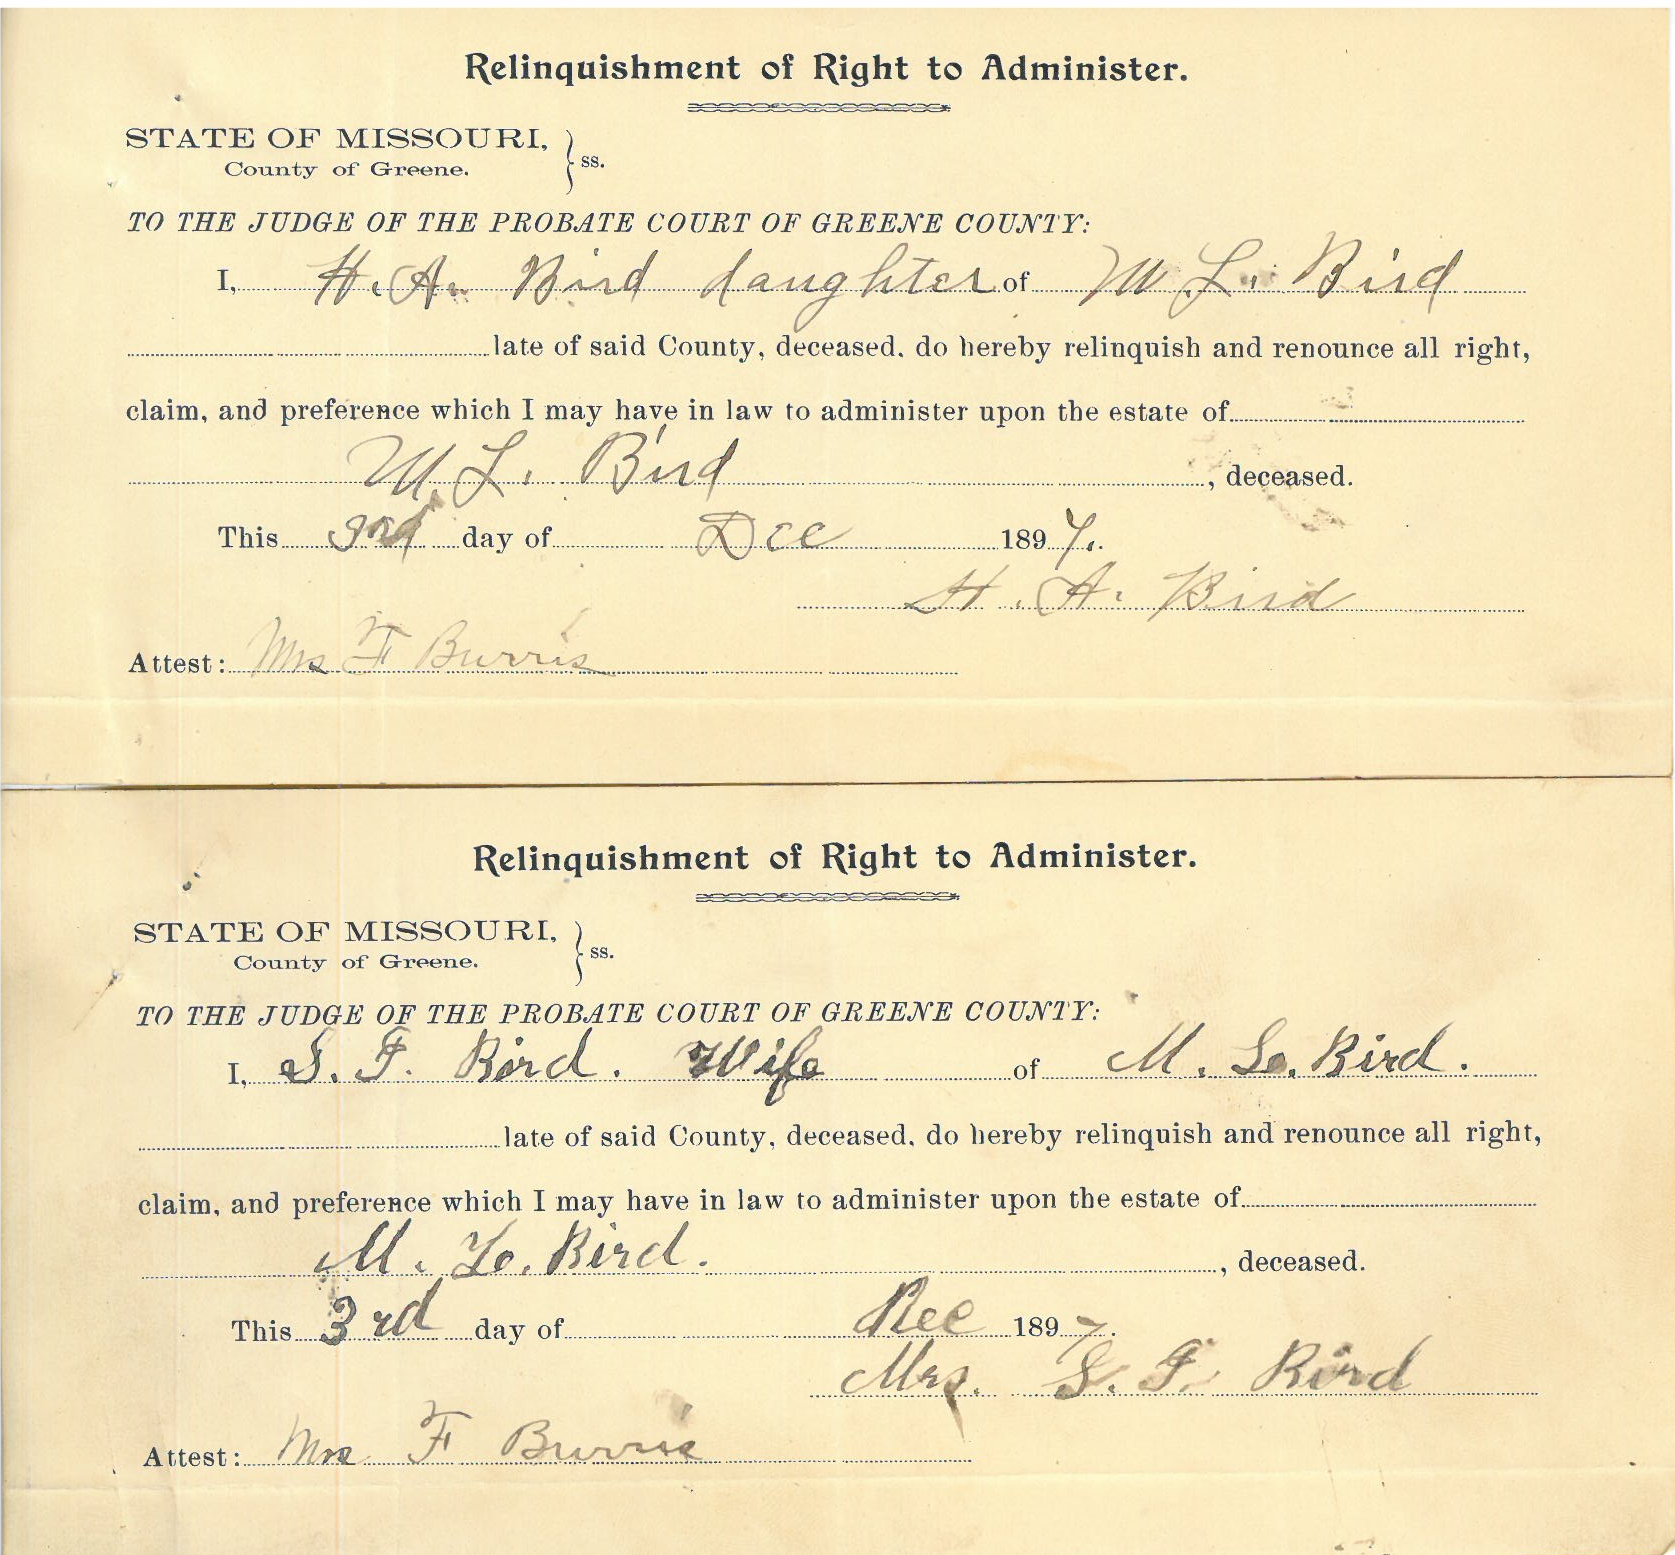 Relinquishment of Right to Administer.
STATE OF MISSOURI, } ss.
County of Greene.
TO THE JUDGE OF THE PROBATE COURT OF GREENE COUNTY:
I, H. A. Bird daughter of M L. Bird
late of said County, deceased, do hereby relinquish and renounce all right,
claim, and preference which I may have in law to administer upon the estate of
M. L. Bird, deceased.
This 3rd day of Dec 1897.
H. A. Bird
Attest: Mrs F Burris
Relinquishment of Right to Administer.
STATE OF MISSOURI, } ss.
County of Greene.
TO THE JUDGE OF THE PROBATE COURT OF GREENE COUNTY:
I, S. F. Bird. Wife of M. L. Bird.
late of said County, deceased, do hereby relinquish and renounce all right,
claim, and preference which I may have in law to administer upon the estate of
M. L. Bird. , deceased.
This 3rd day of Dec 1897.
Mrs. S. F. Bird
Attest: Mrs F Burris